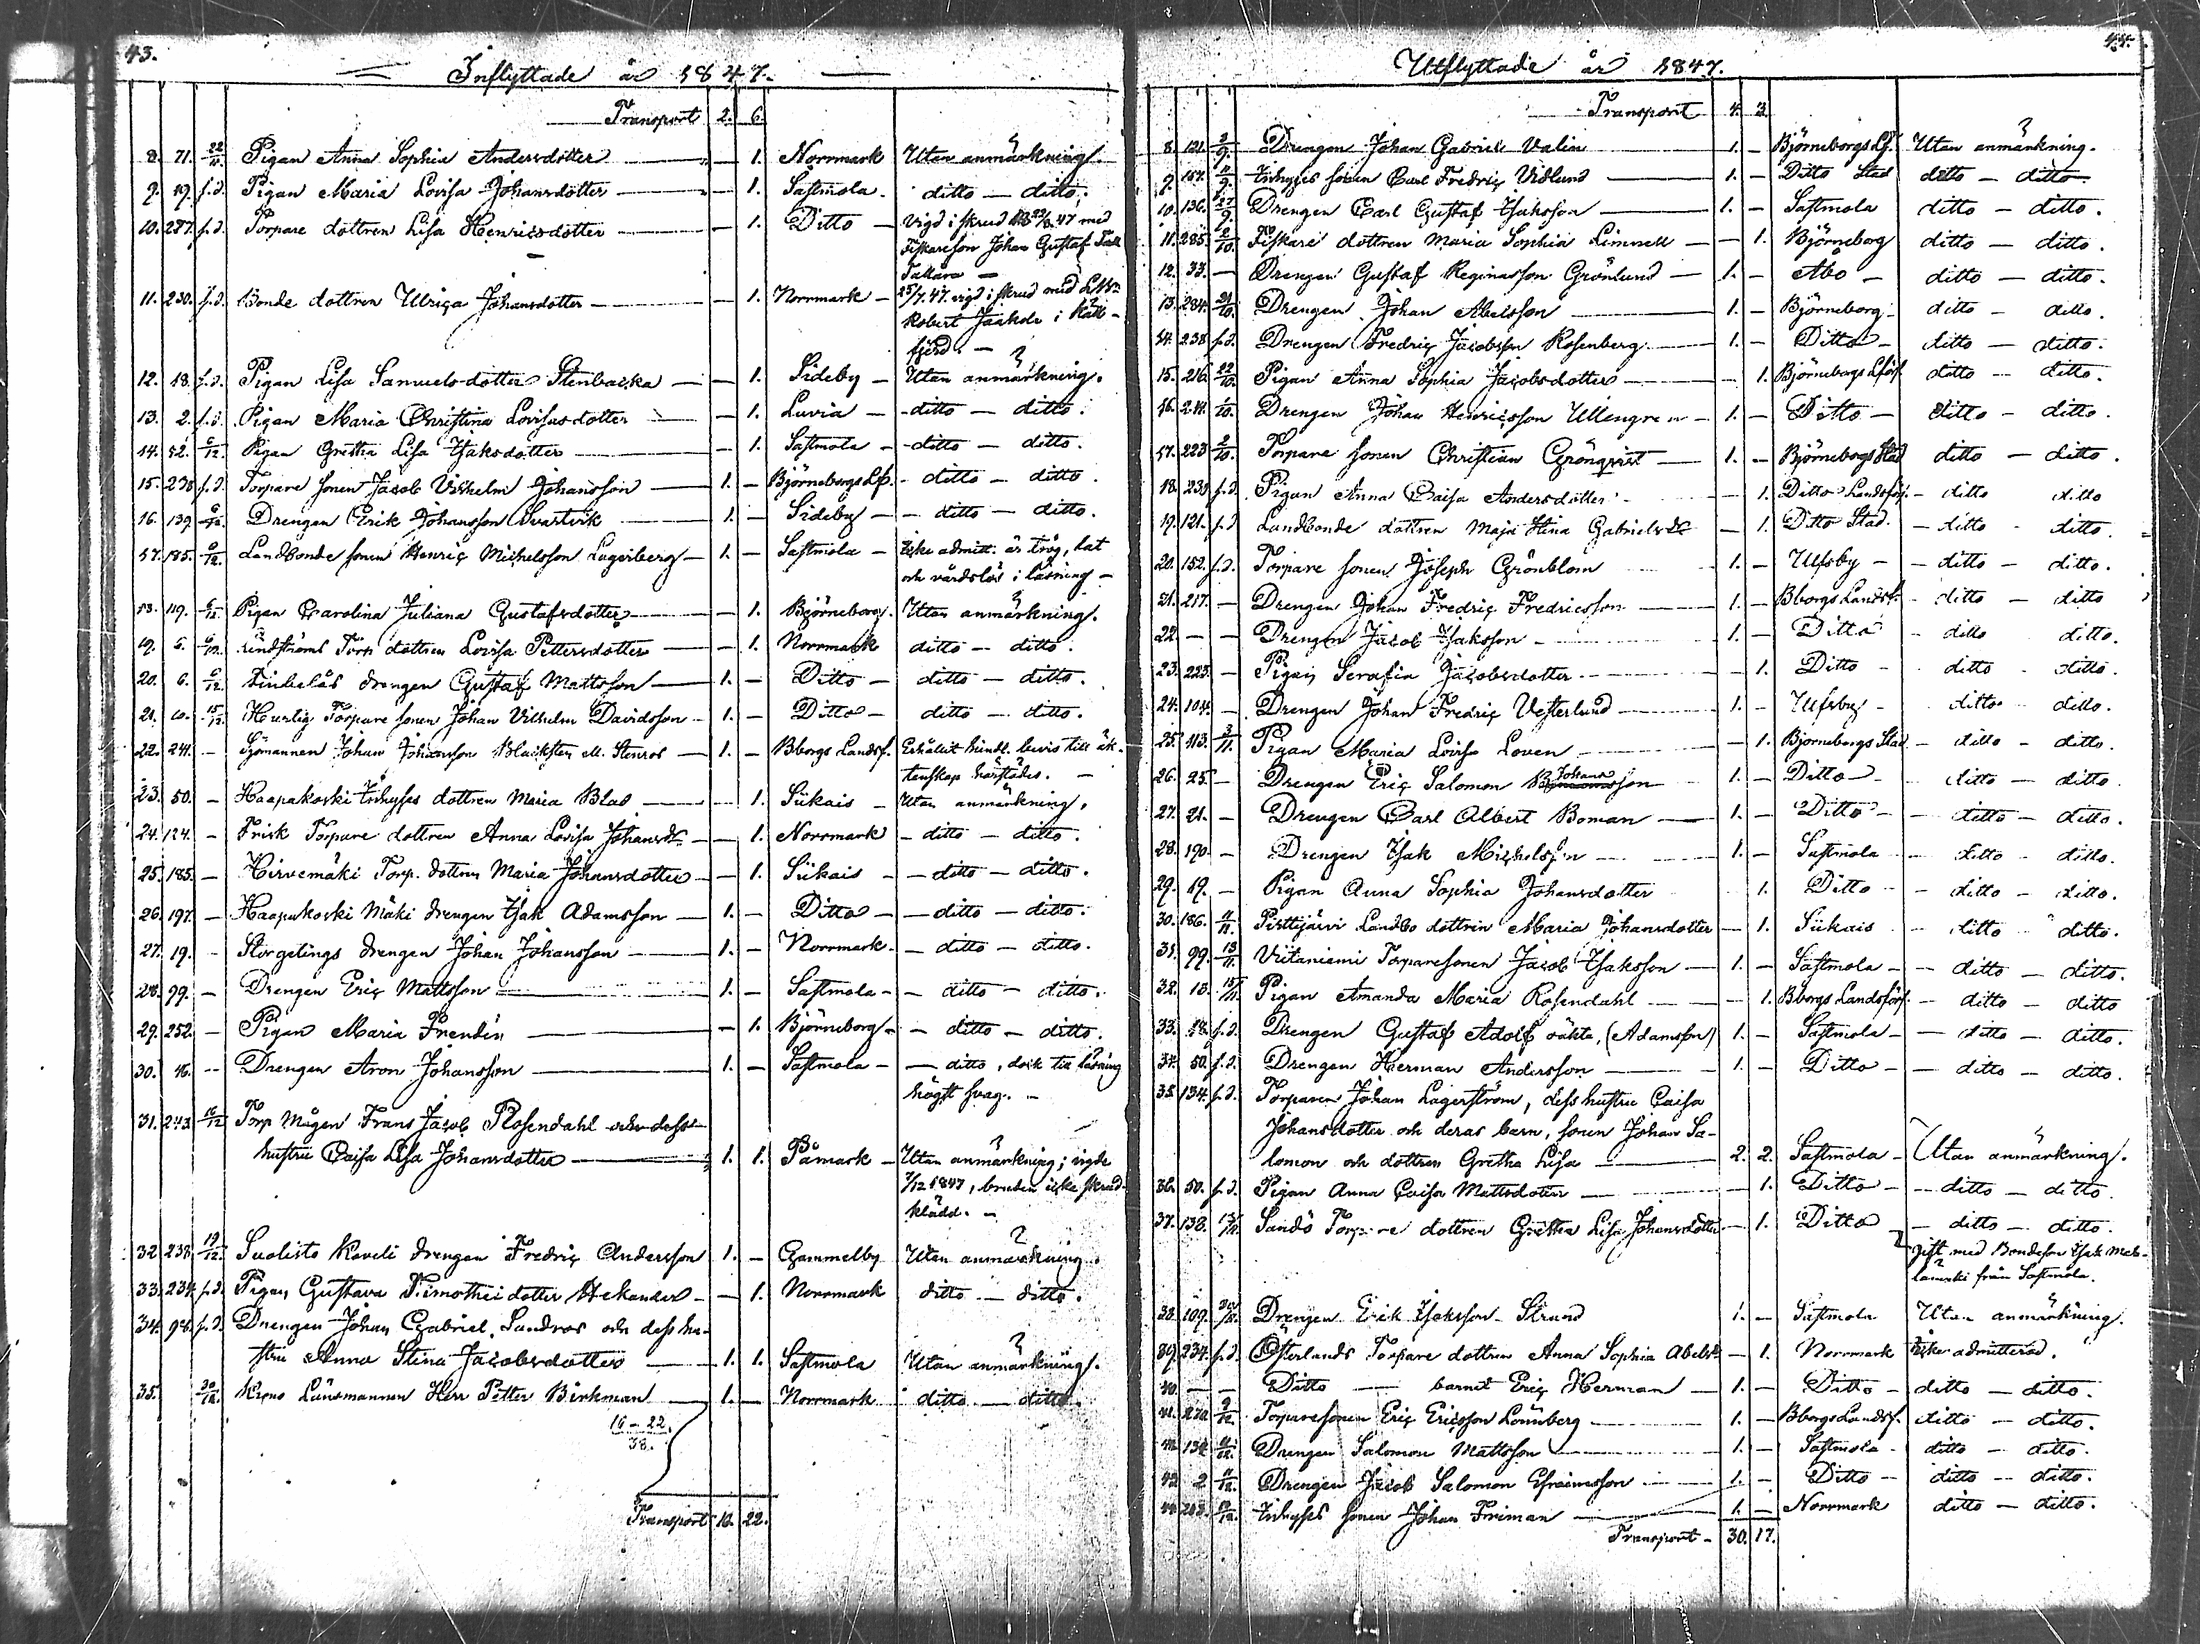 43.
Inflyttade år 1847.
Transport 2. 6.
8. 71. 22/11. Pigan Anna Sophia Andersdotter — 1. Norrmark Utan anmärkning.
9. 19. s.d. Pigan Maria Lovisa Johansdotter — 1. Sastmola. ditto — ditto.
10. 287. s.d. Torpare dottren Lisa Henricsdotter — 1. Ditto — Vigd i skrud med
Fiskareson Johan Gustaf
11. 230. s.d. Bonde dottren Ulrica Johansdotter — 1. Norrmark — vigd i skrud med
Robert Jaakola i
fjerd. —
12. 18. s.d. Pigan Lisa Samuelsdotter Stenbacka — 1. Sideby — Utan anmärkning.
13. 2. s.d. Pigan Maria Christina Lovisasdotter — 1. Luvia — ditto — ditto.
14. 52. 6/12. Pigan Gretha Lisa Isaksdotter — 1. Sastmola — ditto — ditto.
15. 238 s.d. Torpare sonen Jacob Vilhelm Johansson 1. — Björneborgs Lf. — ditto — ditto.
16. 139. 6/12. Drengen Erik Johansson Svartvik 1. — Sideby — ditto — ditto.
17. 185. 6/12. Landbonde sonen Henric Michelsson Lagerberg — 1. — Sastmola — Icke admitt. är trög, lat
och vårdslös i läsning —
18. 119. 6/12. Pigan Carolina Juliana Gustafsdotter — 1. Björneborg. Utan anmärkning.
19. 6. 6/12. Lindströms Torp dottren Lovisa Pettersdotter — 1. Norrmark ditto — ditto.
20. 6. 6/12. drengen Gustaf Mattsson — 1. — Ditto — ditto — ditto.
21. 15/12. Hurtig Torpare sonen Johan Vilhelm Davidsson — 1. — Ditto — ditto — ditto.
22. 241. — Sjömannen Johan Johansson Blacksten M. Stenros — 1. — Bborgs Landsf. Erhållit hindl. bevis till äk-
tenskap härstädes. —
23. 50. — Haapakoski Inhyses dottren Maria Blad — 1. Siikais — Utan anmärkning.
24. 124. — Frisk Torpare dottren Anna Lovisa Johansdr — 1. Norrmark — ditto — ditto.
25. 185. — Hirvemäki Torp. dottren Maria Johansdotter — 1. Siikais — ditto — ditto.
26. 197. — Haapakoski Mäki drengen Isak Adamsson — 1. — Ditto — ditto — ditto.
27. 19. — Storgetings drengen Johan Johansson — 1. — Norrmark. — ditto — ditto.
28. 99. — Drengen Eric Mattsson — 1. — Sastmola — ditto — ditto.
29. 252. — Pigan Maria Frendin — 1. Björneborg — ditto — ditto.
30. 16. — Drengen Aron Johansson — 1. — Sastmola — ditto, dock till läsning
högst svag. —
31. 243. 16/12 Torp Mågen Frans Jacob Rosendahl och dess
hustru Caisa Lisa Johansdotter — 1. 1. Påmark — Utan anmärkning; vigde
7/12 1847, bruden icke skrud-
klädd. —
32. 238. 19/12. Suolisto Kaveli drengen Fredric Andersson 1. — Gammelby Utan anmärkning.
33. 234. s.d. Pigan Gustava Timothei dotter Hekander — 1. Norrmark ditto — ditto.
34. 98. s.d. Drengen Johan Gabriel Sandros och dess hu-
stru Anna Stina Jacobsdotter — 1. 1. Sastmola Utan anmärkning.
35. 30/12. Krono Länsmannen Herr Petter Birkman — 1. — Norrmark ditto — ditto.
16 — 22.
38.
Transport 16. 22.
44.
Utflyttade år 1847.
Transport 4. 3.
8. 121. 2/9. Drengen Johan Gabriel Valin 1. — Björneborgs Lf. Utan anmärkning.
9. 157. 11/9. Inhyses sonen Carl Fredric Vidlund 1. — Ditto Stad ditto — ditto.
10. 136. 27/9. Drengen Carl Gustaf Isaksson 1. — Sastmola ditto — ditto.
11. 285. 2/10. Fiskare dottren Maria Sophia Limnell — 1. Björneborg ditto — ditto.
12. 33. — Drengen Gustaf Reginasson Grönlund — 1. — Åbo — ditto — ditto.
13. 284. 21/10. Drengen Johan Abelsson 1. — Björneborg ditto — ditto.
14. 238 s.d. Drengen Fredric Jacobsson Rosenberg 1. — Ditto — ditto — ditto.
15. 216. 22/10. Pigan Anna Sophia Jacobsdotter — 1. Björneborgs Lförs. ditto — ditto.
16. 211. /10. Drengen Johan Henricsson Ullengren — 1. — Ditto — ditto — ditto.
17. 223 2/10. Torpare sonen Christian Grönqvist 1. — Björneborgs Stad ditto — ditto.
18. 230. s.d. Pigan Anna Caisa Andersdotter — 1. Ditto Landsförs. — ditto ditto
19. 121. s.d. Landbonde dottren Maja Stina Gabrielsdr — 1. Ditto Stad. — ditto — ditto.
20. 152. s.d. Torpare sonen Joseph Grönblom 1. — Ulfsby — ditto — ditto.
21. 217. — Drengen Johan Fredric Fredricsson 1. — Bborgs Landsf. — ditto — ditto
22. — — Drengen Jacob Isaksson — 1. — Ditto — ditto ditto.
23. 223. — Pigan Serafia Jacobsdotter — 1. Ditto — ditto — ditto.
24. 104. — Drengen Johan Fredric Vesterlund 1. — Ulfsby — ditto — ditto.
25. 113. 3/11. Pigan Maria Lovisa Loven — 1. Björneborgs Stad — ditto — ditto.
26. 25. — Drengen Eric Salomon Johansson 1. — Ditto — ditto — ditto.
27. 21. — Drengen Carl Albert Boman 1. — Ditto — ditto — ditto.
28. 190. — Drengen Isak Michelsson — 1. — Sastmola — ditto — ditto.
29. 19. — Pigan Anna Sophia Johansdotter 1. Ditto — ditto — ditto.
30. 186. 11/11. Pirttijärvi Landbo dottren Maria Johansdotter — 1. Siikais ditto ditto.
31. 99. 13/11. Viitaniemi Torparesonen Jacob Isaksson — 1. — Sastmola — ditto — ditto.
32. 13. 15/11. Pigan Amanda Maria Rosendahl — 1. Bborgs Landsförs. — ditto — ditto
33. 18. s.d. Drengen Gustaf Adolf oäkta, (Adamsson) 1. — Sastmola — ditto — ditto.
34. 50. s.d. Drengen Herman Andersson 1. — Ditto — ditto — ditto.
35. 134. s.d. Torparen Johan Lagerström, dess hustru Caisa
Johansdotter och deras barn, sonen Johan Sa-
lomon och dottren Gretha Lisa — 2. 2. Sastmola — Utan anmärkning.
36. 50. s.d. Pigan Anna Caisa Mattsdotter — 1. Ditto — ditto — ditto.
37. 138. Sandö Torpare dottren Gretha Lisa Johansdotter — 1. Ditto — ditto — ditto.
gift med Bondeson Isak
från Sastmola.
38. 109. Drengen Erik Isaksson Strand 1. — Sastmola Utan anmärkning.
39. 234. s.d. Österlands Torpare dottren Anna Sophia Abelsdr — 1. Norrmark Icke admitterad.
40. — — Ditto — barnet Eric Herman — 1. — Ditto — ditto — ditto.
41. 270. 9/12. Torparesonen Eric Ericsson Lönnberg 1. — Bborgs Landsf. ditto — ditto.
42. 134. 11/12. Drengen Salomon Mattsson 1. — Sastmola — ditto — ditto.
43. 2 11/12. Drengen Jacob Salomon Efraimsson 1. — Ditto — ditto — ditto.
44. 203. Inhyses sonen Johan Friman 1. — Norrmark ditto — ditto.
Transport — 30. 17.